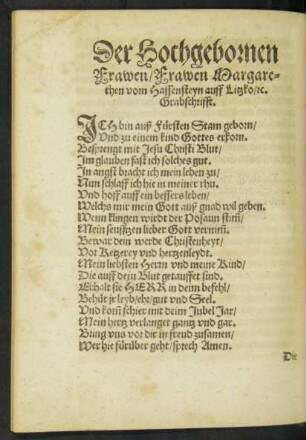 Der Hochgebornen
Frawen/ Frawen Margare-
then vom Hassensteyn auff Litzko/ ꝛc.
Grabschrifft.
ICH bin auß Fürsten Stam geborn/
Vnd zu einem kind Gottes erkorn.
Besprengt mit Jesu Christi Blut/
Im glauben faßt ich solches gut.
In angst bracht ich mein leben zu/
Nun schlaff ich hie in meiner rhu.
Vnd hoff auff ein bessers leben/
Welchs mir mein Gott auß gnad wil geben.
Wenn klingen wirdt der Posaun stim̃/
Mein seufftzen lieber Gott vernim̃.
Bewar dein werde Christenheyt/
Vor Ketzerey vnd hertzenleydt.
Mein liebsten Herrn vnd meine Kind/
Die auff dein Blut getaufft sind.
Erhalt sie HERR in deim befehl/
Behüt jr leyb/ ehr/ gut vnd Seel.
Vnd kom̃ schier mit deim Jubel Jar/
Mein hertz verlanget gantz vnd gar.
Bring vns vor dir in freud zusamen/
Wer hie fürüber geht/ sprech Amen.
Die